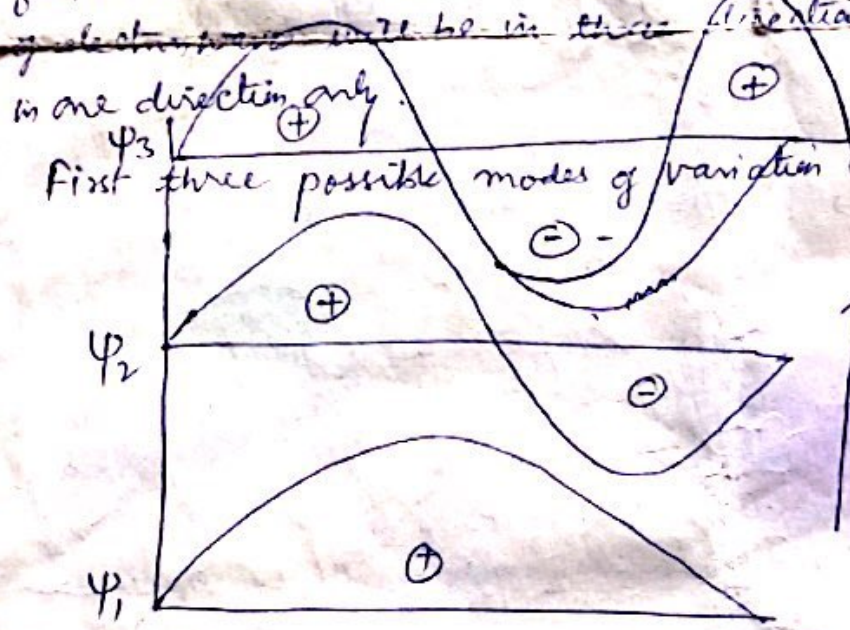 will be in three
in one direction only.
+ +
ψ3
First three possible modes of variation
-
+
ψ2
-
+
ψ1